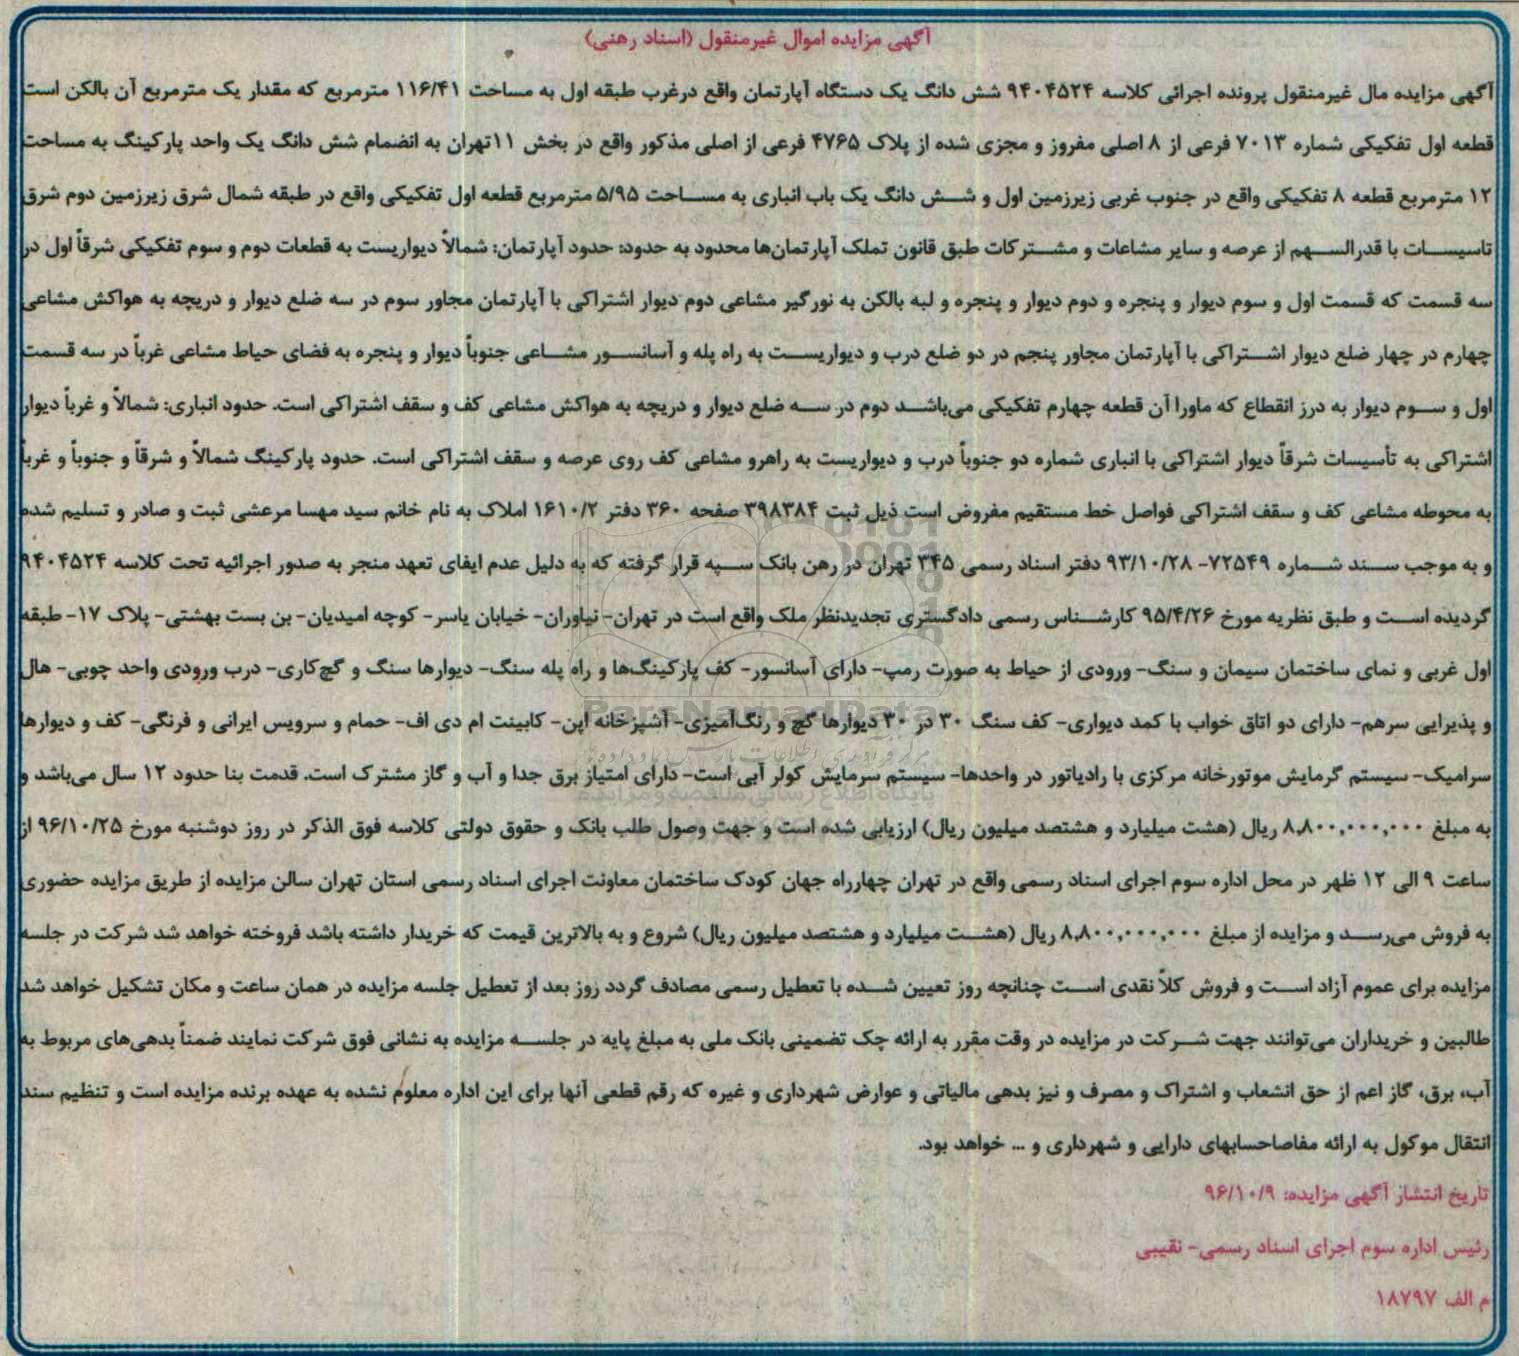 آگهی مزایده اموال غیرمنقول (اسناد رهنی)
آگهی مزایده مال غیرمنقول پرونده اجرائی کلاسه ۹۴۰۴۵۲۴ شش دانگ یک دستگاه آپارتمان واقع درغرب طبقه اول به مساحت ۱۱۶/۴۱ مترمربع که مقدار یک مترمربع آن بالکن است
قطعه اول تفکیکی شماره ۷۰۱۳ فرعی از ۸ اصلی مفروز و مجزی شده از پلاک ۴۷۶۵ فرعی از اصلی مذکور واقع در بخش ۱۱تهران به انضمام شش دانگ یک واحد پارکینگ به مساحت
۱۲ مترمربع قطعه ۸ تفکیکی واقع در جنوب غربی زیرزمین اول و شش دانگ یک باب انباری به مساحت ۵/۹۵ مترمربع قطعه اول تفکیکی واقع در طبقه شمال شرق زیرزمین دوم شرق
تاسیسات با قدرالسهم از عرصه و سایر مشاعات و مشترکات طبق قانون تملک آپارتمان‌ها محدود به حدود: حدود آپارتمان: شمالاً دیواریست به قطعات دوم و سوم تفکیکی شرقاً اول در
سه قسمت که قسمت اول و سوم دیوار و پنجره و دوم دیوار و پنجره و لبه بالکن به نورگیر مشاعی دوم دیوار اشتراکی با آپارتمان مجاور سوم در سه ضلع دیوار و دریچه به هواکش مشاعی
چهارم در چهار ضلع دیوار اشتراکی با آپارتمان مجاور پنجم در دو ضلع درب و دیواریست به راه پله و آسانسور مشاعی جنوباً دیوار و پنجره به فضای حیاط مشاعی غرباً در سه قسمت
اول و سوم دیوار به درز انقطاع که ماورا آن قطعه چهارم تفکیکی می‌باشد دوم در سه ضلع دیوار و دریچه به هواکش مشاعی کف و سقف اشتراکی است. حدود انباری: شمالاً و غرباً دیوار
اشتراکی به تأسیسات شرقاً دیوار اشتراکی با انباری شماره دو جنوباً درب و دیواریست به راهرو مشاعی کف روی عرصه و سقف اشتراکی است. حدود پارکینگ شمالاً و شرقاً و جنوباً و غرباً
به محوطه مشاعی کف و سقف اشتراکی فواصل خط مستقیم مفروض است ذیل ثبت ۳۹۸۳۸۴ صفحه ۳۶۰ دفتر ۱۶۱۰/۲ املاک به نام خانم سید مهسا مرعشی ثبت و صادر و تسلیم شده
و به موجب سند شماره ۷۲۵۴۹- ۹۳/۱۰/۲۸ دفتر اسناد رسمی ۳۴۵ تهران در رهن بانک سپه قرار گرفته که به دلیل عدم ایفای تعهد منجر به صدور اجرائیه تحت کلاسه ۹۴۰۴۵۲۴
گردیده است و طبق نظریه مورخ ۹۵/۴/۲۶ کارشناس رسمی دادگستری تجدیدنظر ملک واقع است در تهران- نیاوران- خیابان یاسر- کوچه امیدیان- بن بست بهشتی- پلاک ۱۷- طبقه
اول غربی و نمای ساختمان سیمان و سنگ- ورودی از حیاط به صورت رمپ- دارای آسانسور- کف پارکینگ‌ها و راه پله سنگ- دیوارها سنگ و گچ‌کاری- درب ورودی واحد چوبی- هال
و پذیرایی سرهم- دارای دو اتاق خواب با کمد دیواری- کف سنگ ۳۰ در ۳۰ دیوارها گچ و رنگ‌آمیزی- آشپزخانه اپن- کابینت ام دی اف- حمام و سرویس ایرانی و فرنگی- کف و دیوارها
سرامیک- سیستم گرمایش موتورخانه مرکزی با رادیاتور در واحدها- سیستم سرمایش کولر آبی است- دارای امتیاز برق جدا و آب و گاز مشترک است. قدمت بنا حدود ۱۲ سال می‌باشد و
به مبلغ ۸,۸۰۰,۰۰۰,۰۰۰ ریال (هشت میلیارد و هشتصد میلیون ریال) ارزیابی شده است و جهت وصول طلب بانک و حقوق دولتی کلاسه فوق الذکر در روز دوشنبه مورخ ۹۶/۱۰/۲۵ از
ساعت ۹ الی ۱۲ ظهر در محل اداره سوم اجرای اسناد رسمی واقع در تهران چهارراه جهان کودک ساختمان معاونت اجرای اسناد رسمی استان تهران سالن مزایده از طریق مزایده حضوری
به فروش می‌رسد و مزایده از مبلغ ۸,۸۰۰,۰۰۰,۰۰۰ ریال (هشت میلیارد و هشتصد میلیون ریال) شروع و به بالاترین قیمت که خریدار داشته باشد فروخته خواهد شد شرکت در جلسه
مزایده برای عموم آزاد است و فروش کلاً نقدی است چنانچه روز تعیین شده با تعطیل رسمی مصادف گردد روز بعد از تعطیل جلسه مزایده در همان ساعت و مکان تشکیل خواهد شد
طالبین و خریداران می‌توانند جهت شرکت در مزایده در وقت مقرر به ارائه چک تضمینی بانک ملی به مبلغ پایه در جلسه مزایده به نشانی فوق شرکت نمایند ضمناً بدهی‌های مربوط به
آب، برق، گاز اعم از حق انشعاب و اشتراک و مصرف و نیز بدهی مالیاتی و عوارض شهرداری و غیره که رقم قطعی آنها برای این اداره معلوم نشده به عهده برنده مزایده است و تنظیم سند
انتقال موکول به ارائه مفاصاحسابهای دارایی و شهرداری و ... خواهد بود.
تاریخ انتشار آگهی مزایده: ۹۶/۱۰/۹
رئیس اداره سوم اجرای اسناد رسمی- نقیبی
م الف ۱۸۷۹۷
ParsNamadData